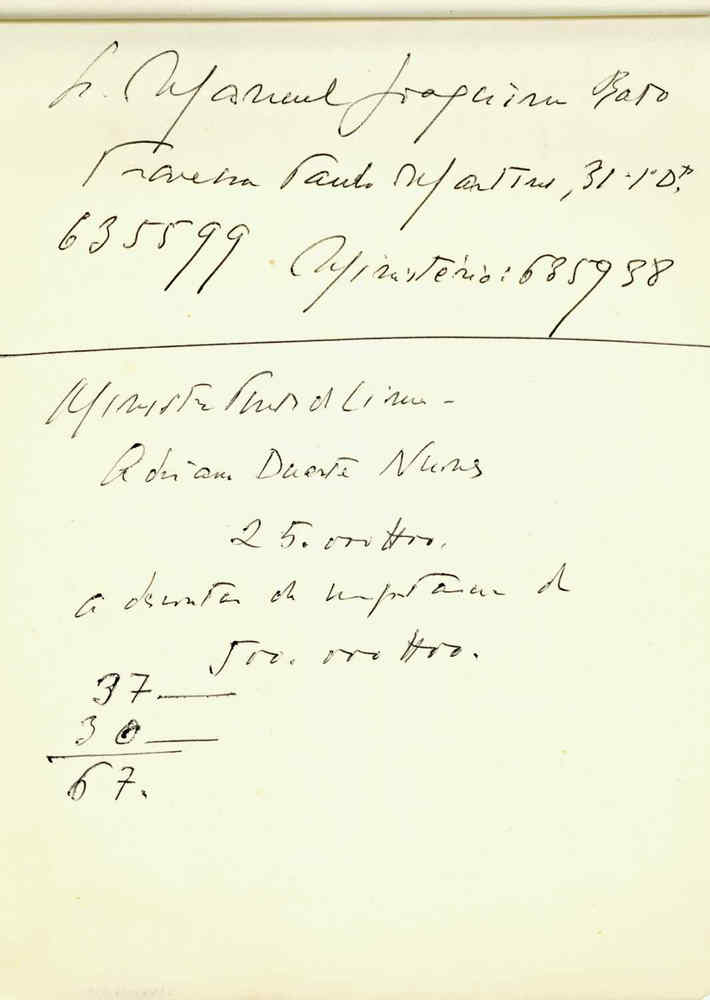 Sr. Manuel Joaquim Bato
Travessa Paulo Martins, 31-1º Dtº
635599 Ministério: 635938
Ministro Pinto de Lima -
Adriano Duarte Nunes
25.000$00.
a descontar da importância de
500.000$00.
37.—
30—
67.